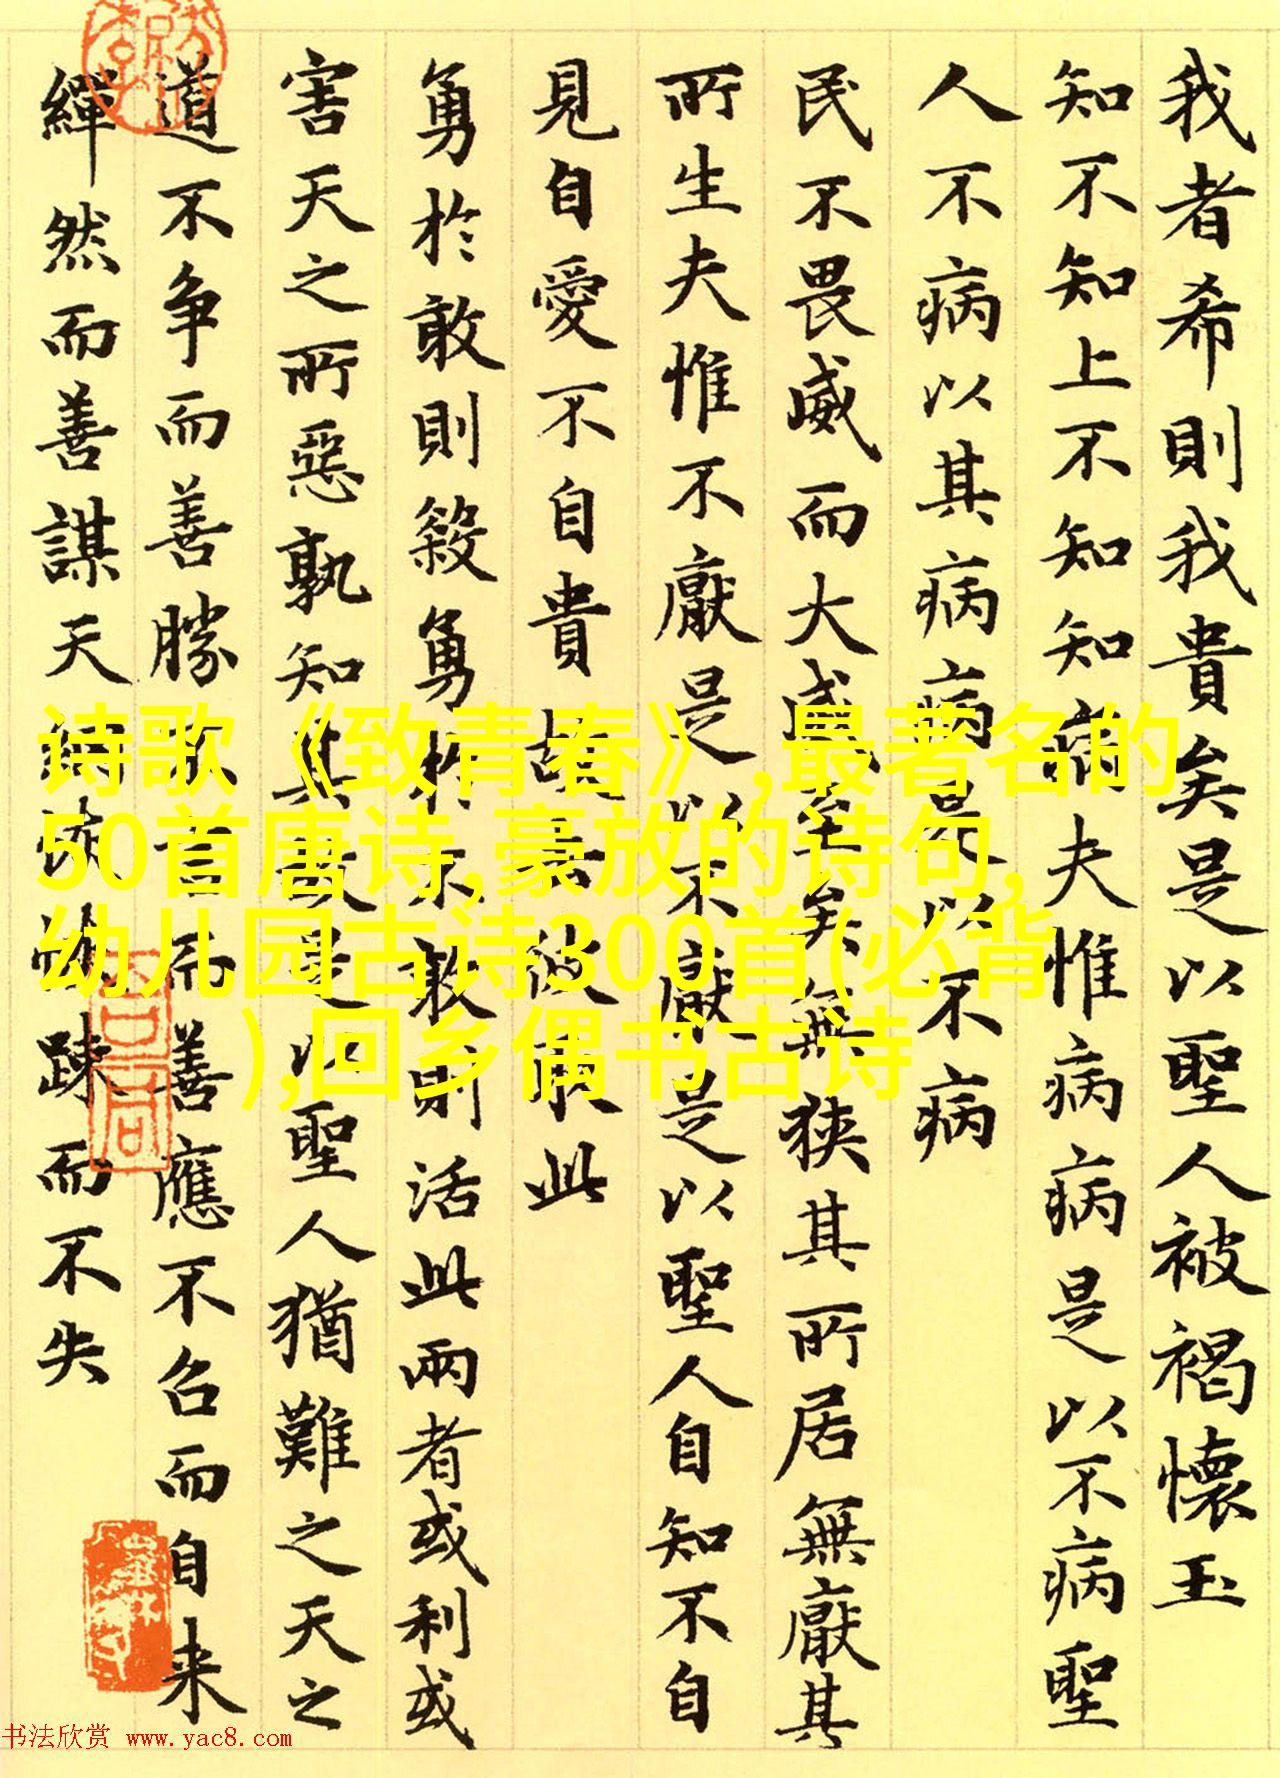 我者希則我貴矣是以聖人被褐懷玉
知不知上不知知病夫惟病病是以不病聖
人不病以其病病是以不病
民不畏威而大威至矣無狹其所居無厭其
所生夫惟不厭是以不厭是以聖人自知不自
見自愛不自貴故去彼取此
勇於敢則殺勇於不敢則活此兩者或利或
害天之所惡孰知其故是以聖人猶難之天之
道不争而善勝不言而善應不召而自来
繟然而善謀天網恢恢踈而不失
诗歌《致青春》,最著名的
50首唐诗,豪放的诗句,
幼儿园古诗300首(必背
),回乡偶书古诗
书法欣赏 www.yac8.com